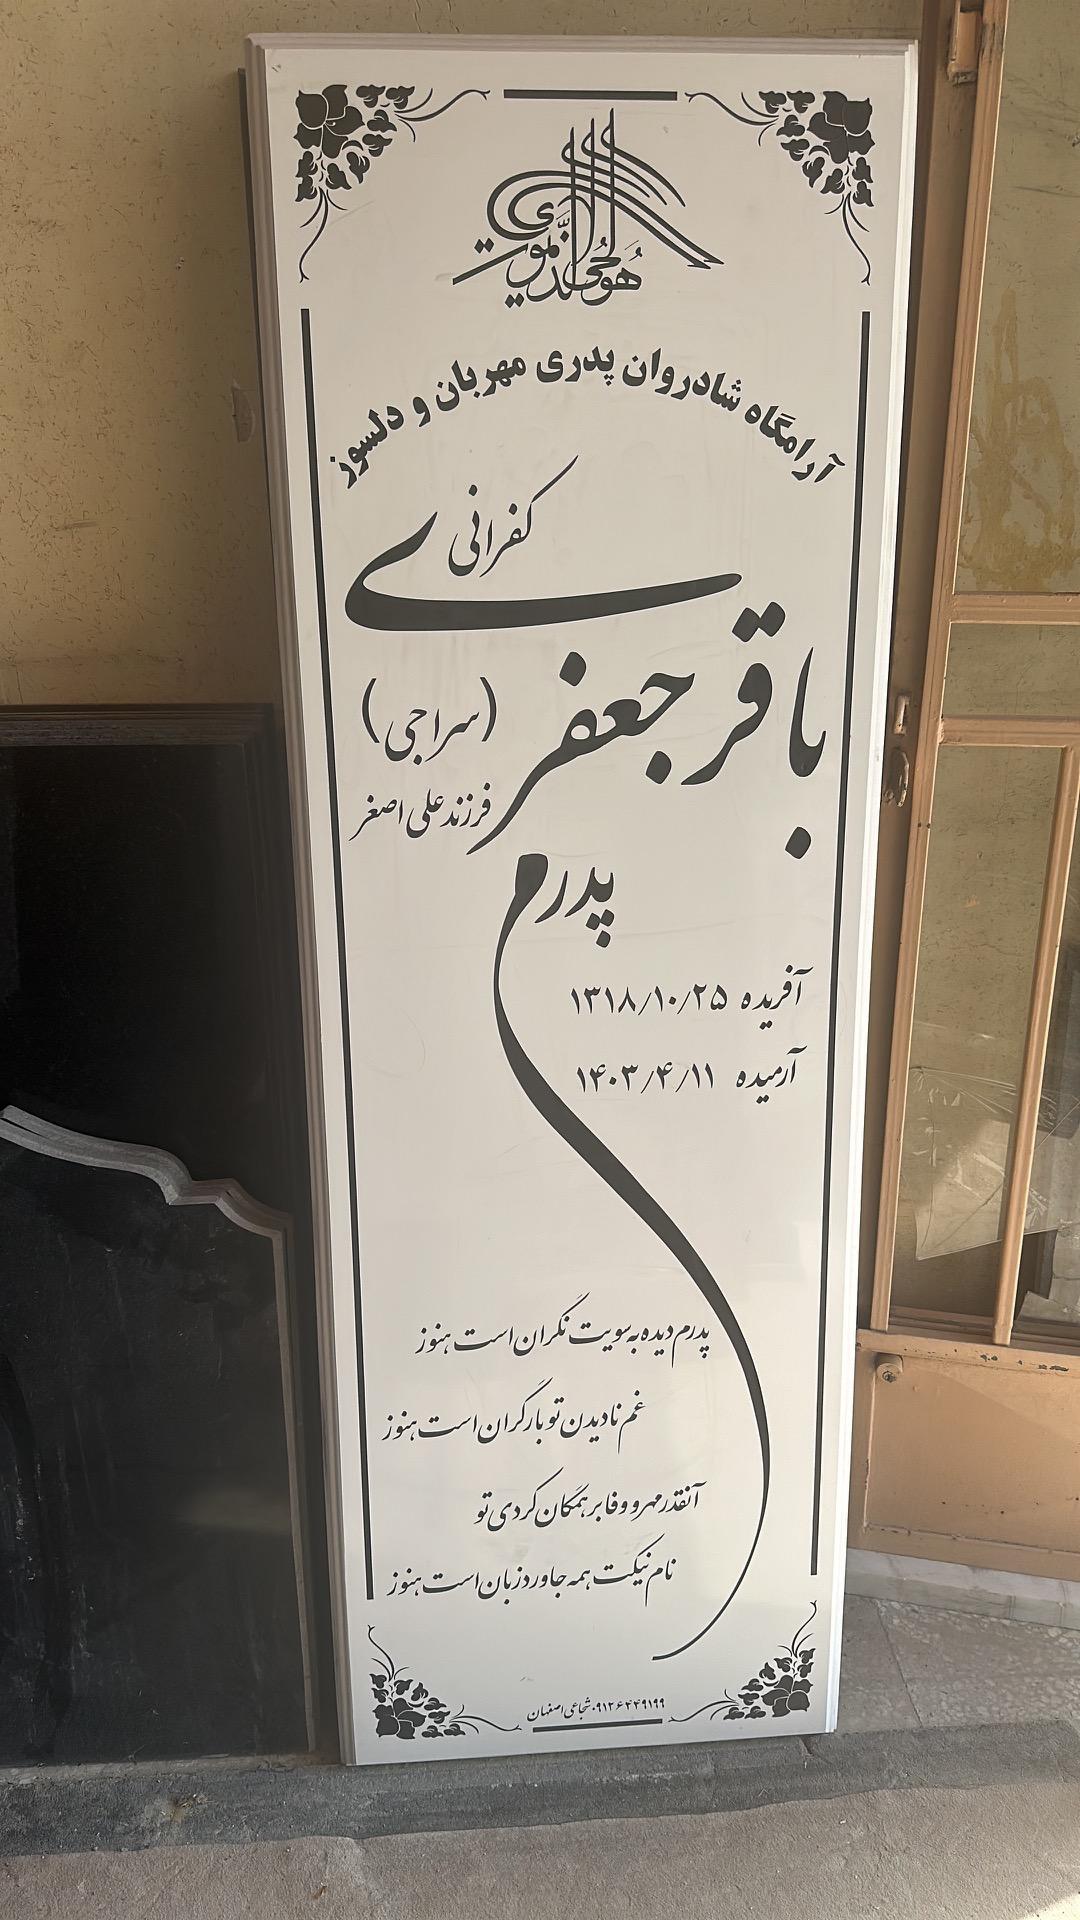 هو الحی الذی لا یموت
آرامگاه شادروان پدری مهربان و دلسوز
باقر جعفری کفرانی
(سراجی)
فرزند علی اصغر
پدرم
آفریده ۱۳۱۸/۱۰/۲۵
آرمیده ۱۴۰۳/۴/۱۱
پدرم دیده به سویت نگران است هنوز
غم نادیدن تو بار گران است هنوز
آنقدر مهر و وفا بر همگان کردی تو
نام نیکت همه جا ورد زبان است هنوز
۰۹۱۲۶۴۴۹۱۹۹ شجاعی اصفهان